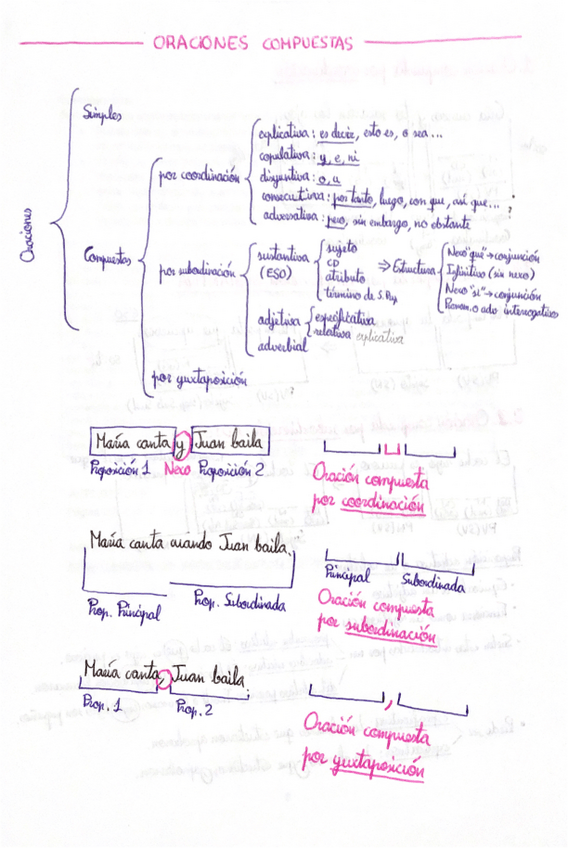 ORACIONES COMPUESTAS
Oraciones
Simples
Compuestas
por coordinación
explicativa: es decir, esto es, o sea...
copulativa: y, e, ni
disyuntiva: o, u
consecutiva: por tanto, luego, con que, así que... ;
adversativa: pero, sin embargo, no obstante
por subordinación
sustantiva
(ESO)
sujeto
CD
atributo
término de S. Prep
⇒ Estructura
Nexo "que" → conjunción
Infinitivo (sin nexo)
Nexo "si" → conjunción
Pronom. o adv. interrogativos
adjetiva
especificativa
relativa explicativa
adverbial
por yuxtaposición
María canta y Juan baila
Proposición 1 Nexo Proposición 2
Oración compuesta
por coordinación
María canta cuándo Juan baila.
Prop. Principal
Prop. Subordinada
Principal Subordinada
Oración compuesta
por subordinación
María canta, Juan baila
Prop. 1
Prop. 2
,
Oración compuesta
por yuxtaposición